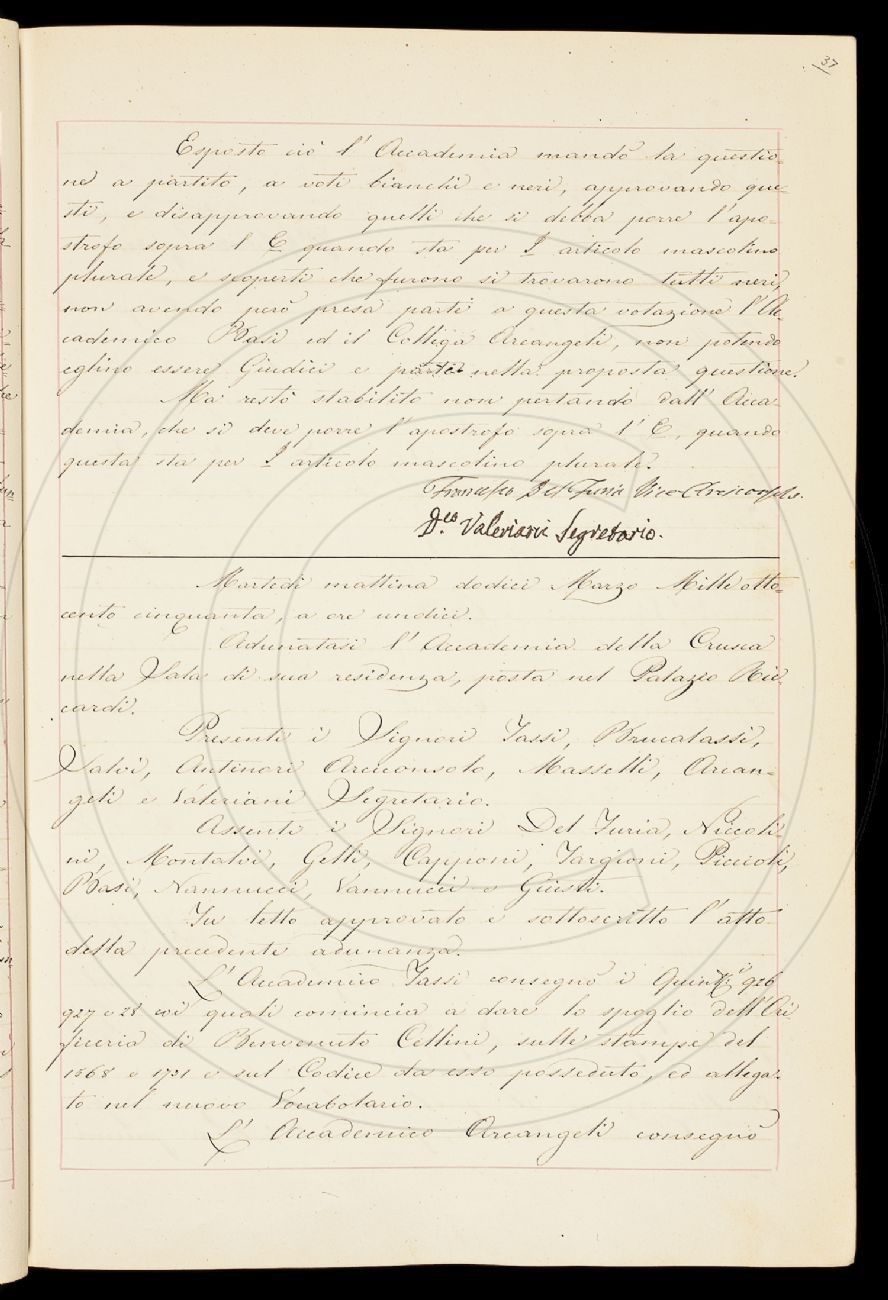 37
Esposto ciò l'Accademia mandò la questio=
ne a partito, a voti bianchi e neri, approvando que=
sti, e disapprovando quelli che si debba porre l'apo=
strofo sopra l E quando sta per I articolo mascolino
plurale, e scoperti che furono si trovarono tutti neri,
non avendo però presa parti a questa votazione l'Ac
cademico Basi ed il Collega Arcangeli, non potendo
eglino essere Giudici e parte nella proposta questione.
Ma restò stabilito non pertando dall'Acca=
demia, che si deve porre l'apostrofo sopra l'E, quando
questa sta per I articolo mascolino plurale.
Francesco Del Furia Vice Arciconsolo.
D.co Valeriani Segretario.
Martedì mattina dodici Marzo Mille otto=
cento cinquanta, a ore undici.
Adunatasi l'Accademia della Crusca
nella Sala di sua residenza, posta nel Palazio Ric=
cardi.
Presenti i Signori Tassi, Brucalassi,
Salvi, Antinori Arciconsolo, Masselli, Arcan=
geli e Valeriani Segretario.
Assenti i Signori Del Furia, Niccoli=
ni, Montalvi, Gelli, Capponi, Targioni, Piccioli,
Basi, Nannucci, Vannucci e Giusti.
Fu letto approvato e sottoscritto l'atto
della precedente adunanza.
L'Accademico Tassi consegnò i Quinti 926
927 e 28 coi quali comincia a dare lo spoglio dell'Ori
ficeria di Benvenuto Cellini, sulle stampe del
1568 e 1731 e sul Codice da esso posseduto, ed allega=
to nel nuovo Vocabolario.
L'Accademico Arcangeli consegnò